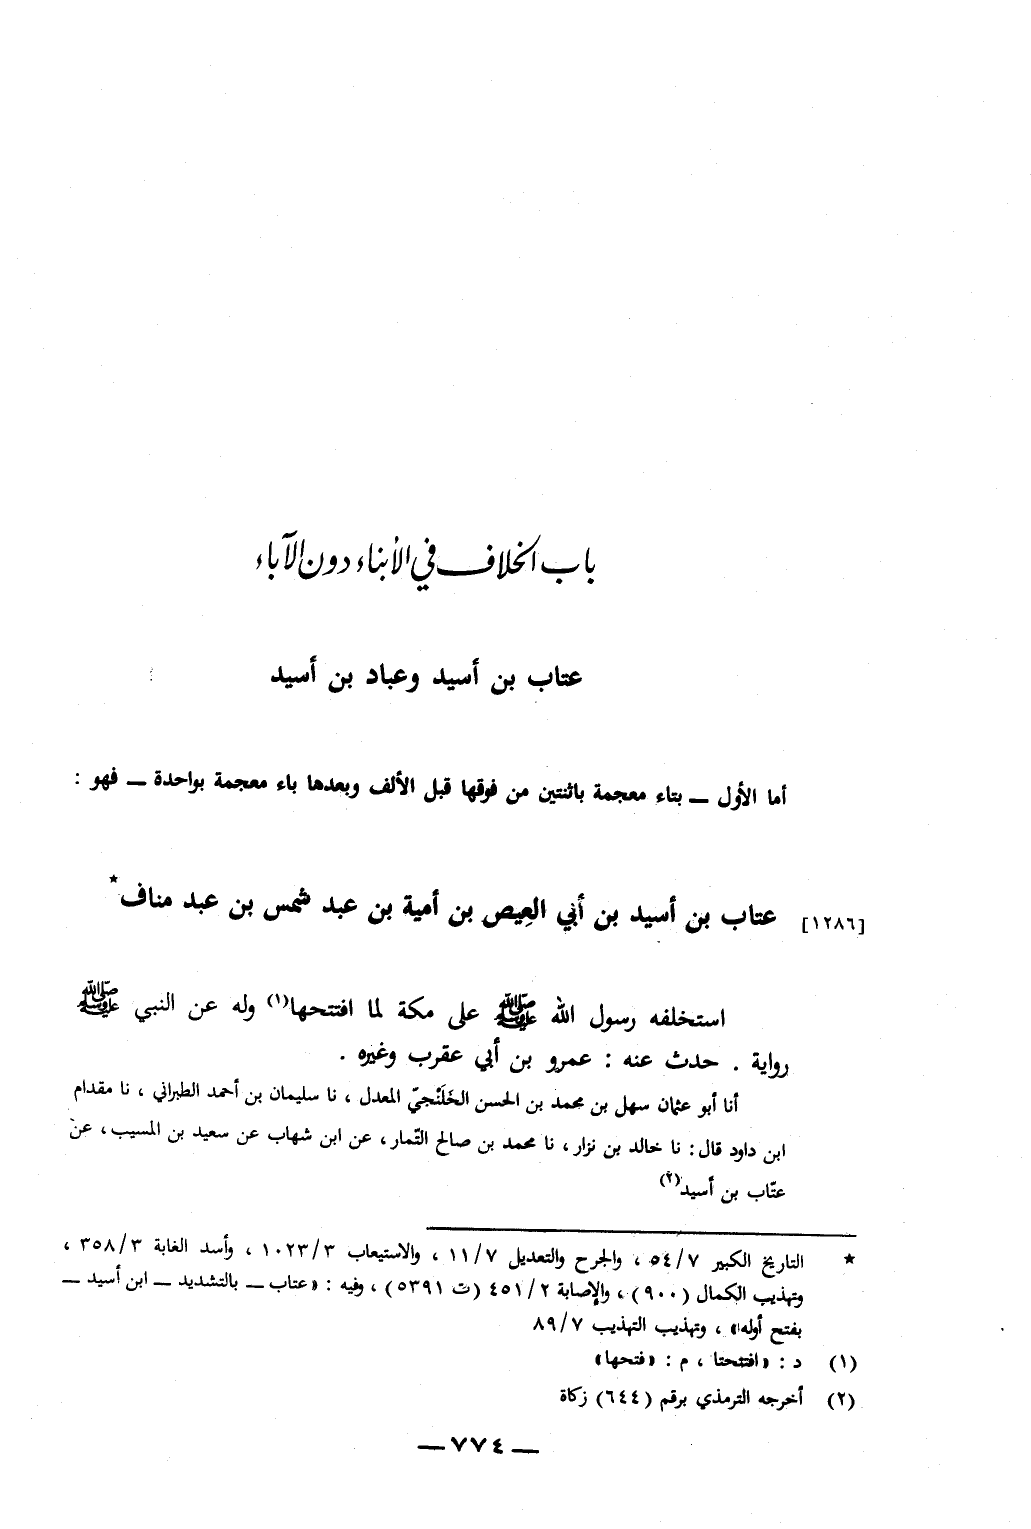 باب الخلاف في الأبناء دون الآباء
عتاب بن أسيد وعباد بن أسيد
أما الأول ــ بتاء معجمة باثنتين من فوقها قبل الألف وبعدها باء معجمة بواحدة ــ فهو :
[١٢٨٦] عتاب بن أسيد بن أبي العِيص بن أمية بن عبد شمس بن عبد مناف*
استخلفه رسول الله ﷺ على مكة لما افتتحها(١) وله عن النبي ﷺ
رواية . حدث عنه : عمرو بن أبي عقرب وغيره .
أنا أبو عثمان سهل بن محمد بن الحسن الخَلَنْجيّ المعدل ، نا سليمان بن أحمد الطبراني ، نا مقدام
ابن داود قال : نا خالد بن نزار ، نا محمد بن صالح التّمار ، عن ابن شهاب عن سعيد بن المسيب ، عن
عتّاب بن أسيد(٢)
* التاريخ الكبير ٥٤/٧ ، والجرح والتعديل ١١/٧ ، والاستيعاب ١٠٢٣/٣ ، وأسد الغابة ٣٥٨/٣ ،
وتهذيب الكمال (٩٠٠) ، والإصابة ٤٥١/٢ (ت ٥٣٩١) ، وفيه : «عتاب ــ بالتشديد ــ ابن أسيد ــ
بفتح أوله» ، وتهذيب التهذيب ٨٩/٧
(١) د : «افتتحتا ، م : «فتحها»
(٢) أخرجه الترمذي برقم (٦٤٤) زكاة
ــ ٧٧٤ ــ